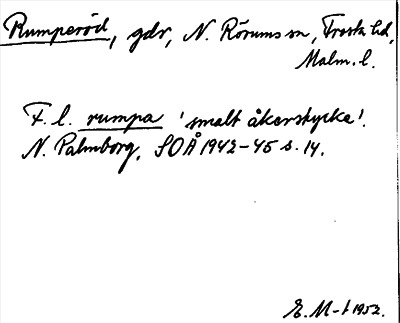 Rumperöd, gdr, N. Rörums sn, Frosta hd,
Malm. l.
F. l. rumpa 'smalt åkerstycke'.
N. Palmborg, SOÅ 1942-45 s. 14.
E. M-t 1952.